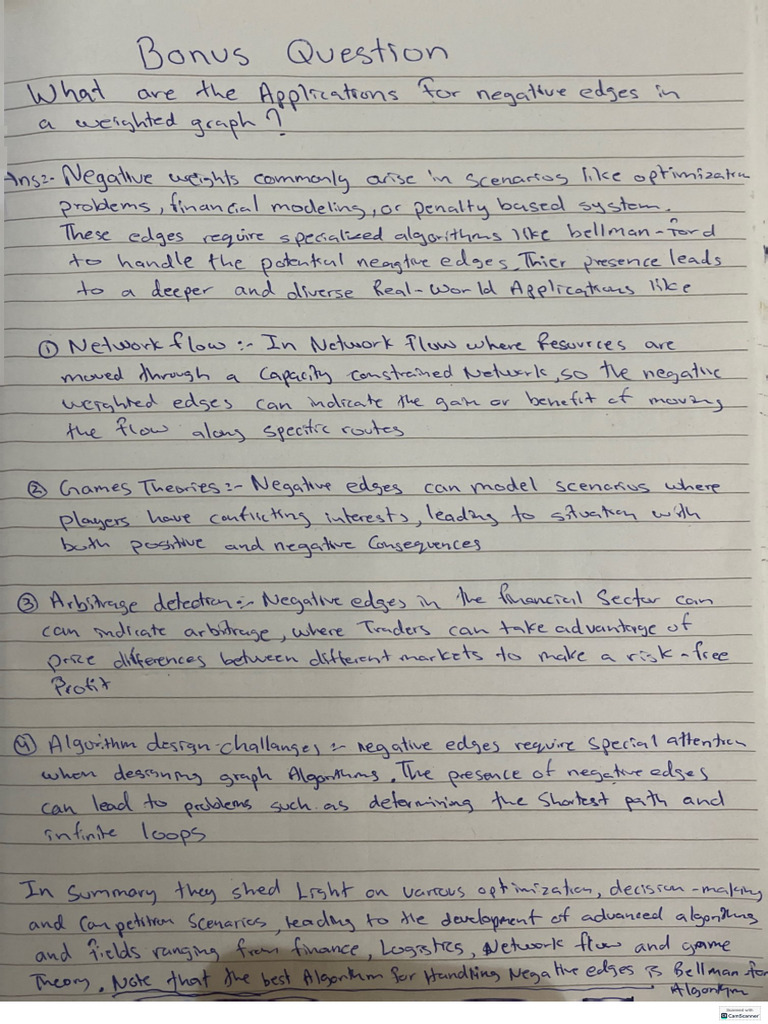 Bonus Question
What are the Applications for negative edges in
a weighted graph?
Ans:- Negative weights commonly arise in scenarios like optimization
problems, financial modeling, or penalty based system.
These edges require specialized algorithms like bellman-ford
to handle the potential neagtive edges. Thier presence leads
to a deeper and diverse Real-World Applications like
① Network flow :- In Network flow where Resources are
moved through a Capacity constrained Network, so the negative
weighted edges can indicate the gain or benefit of moving
the flow along specific routes
② Games Theories :- Negative edges can model scenarios where
players have conflicting interests, leading to situation with
both positive and negative Consequences
③ Arbitrage detection :- Negative edges in the financial Sector can
can indicate arbitrage, where Traders can take advantage of
price differences between different markets to make a risk-free
Profit
④ Algorithm design challanges :- negative edges require special attention
when designing graph Algorithms. The presence of negative edges
can lead to problems such as determining the Shortest path and
infinite loops
In Summary they shed Light on various optimization, decision-making
and Competition Scenarios, leading to the development of advanced algorithms
and fields ranging from finance, Logistics, Network flow and game
Theory. Note that the best Algorithm for Handling Negative edges is Bellman for
Algorithm
Scanned with
CamScanner